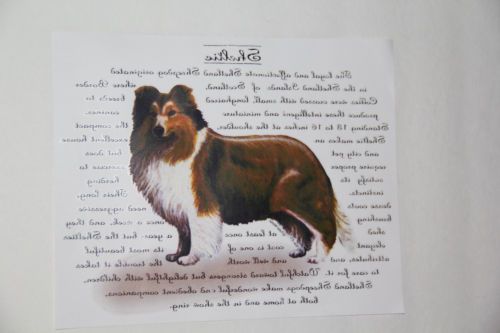 Sheltie
The loyal and affectionate Shetland Sheepdog originated
in the Shetland Islands of Scotland, where Border
Collies were crossed with small, longhaired breeds to
produce these intelligent and miniature canines.
Standing 13 to 16 inches at the shoulder, the compact
Sheltie makes an excellent house
and city pet but does
require proper exercise to
satisfy its herding
instincts. Their long,
dense coats need aggressive
brushing at least once a week, and they
shed a year- but the Sheltie's
elegant coat is one of its most beautiful
attributes and well worth the trouble it takes
to care for it. Watchful toward strangers but delightful with children,
Shetland Sheepdogs make wonderful and obedient companions,
both at home and in the show ring.